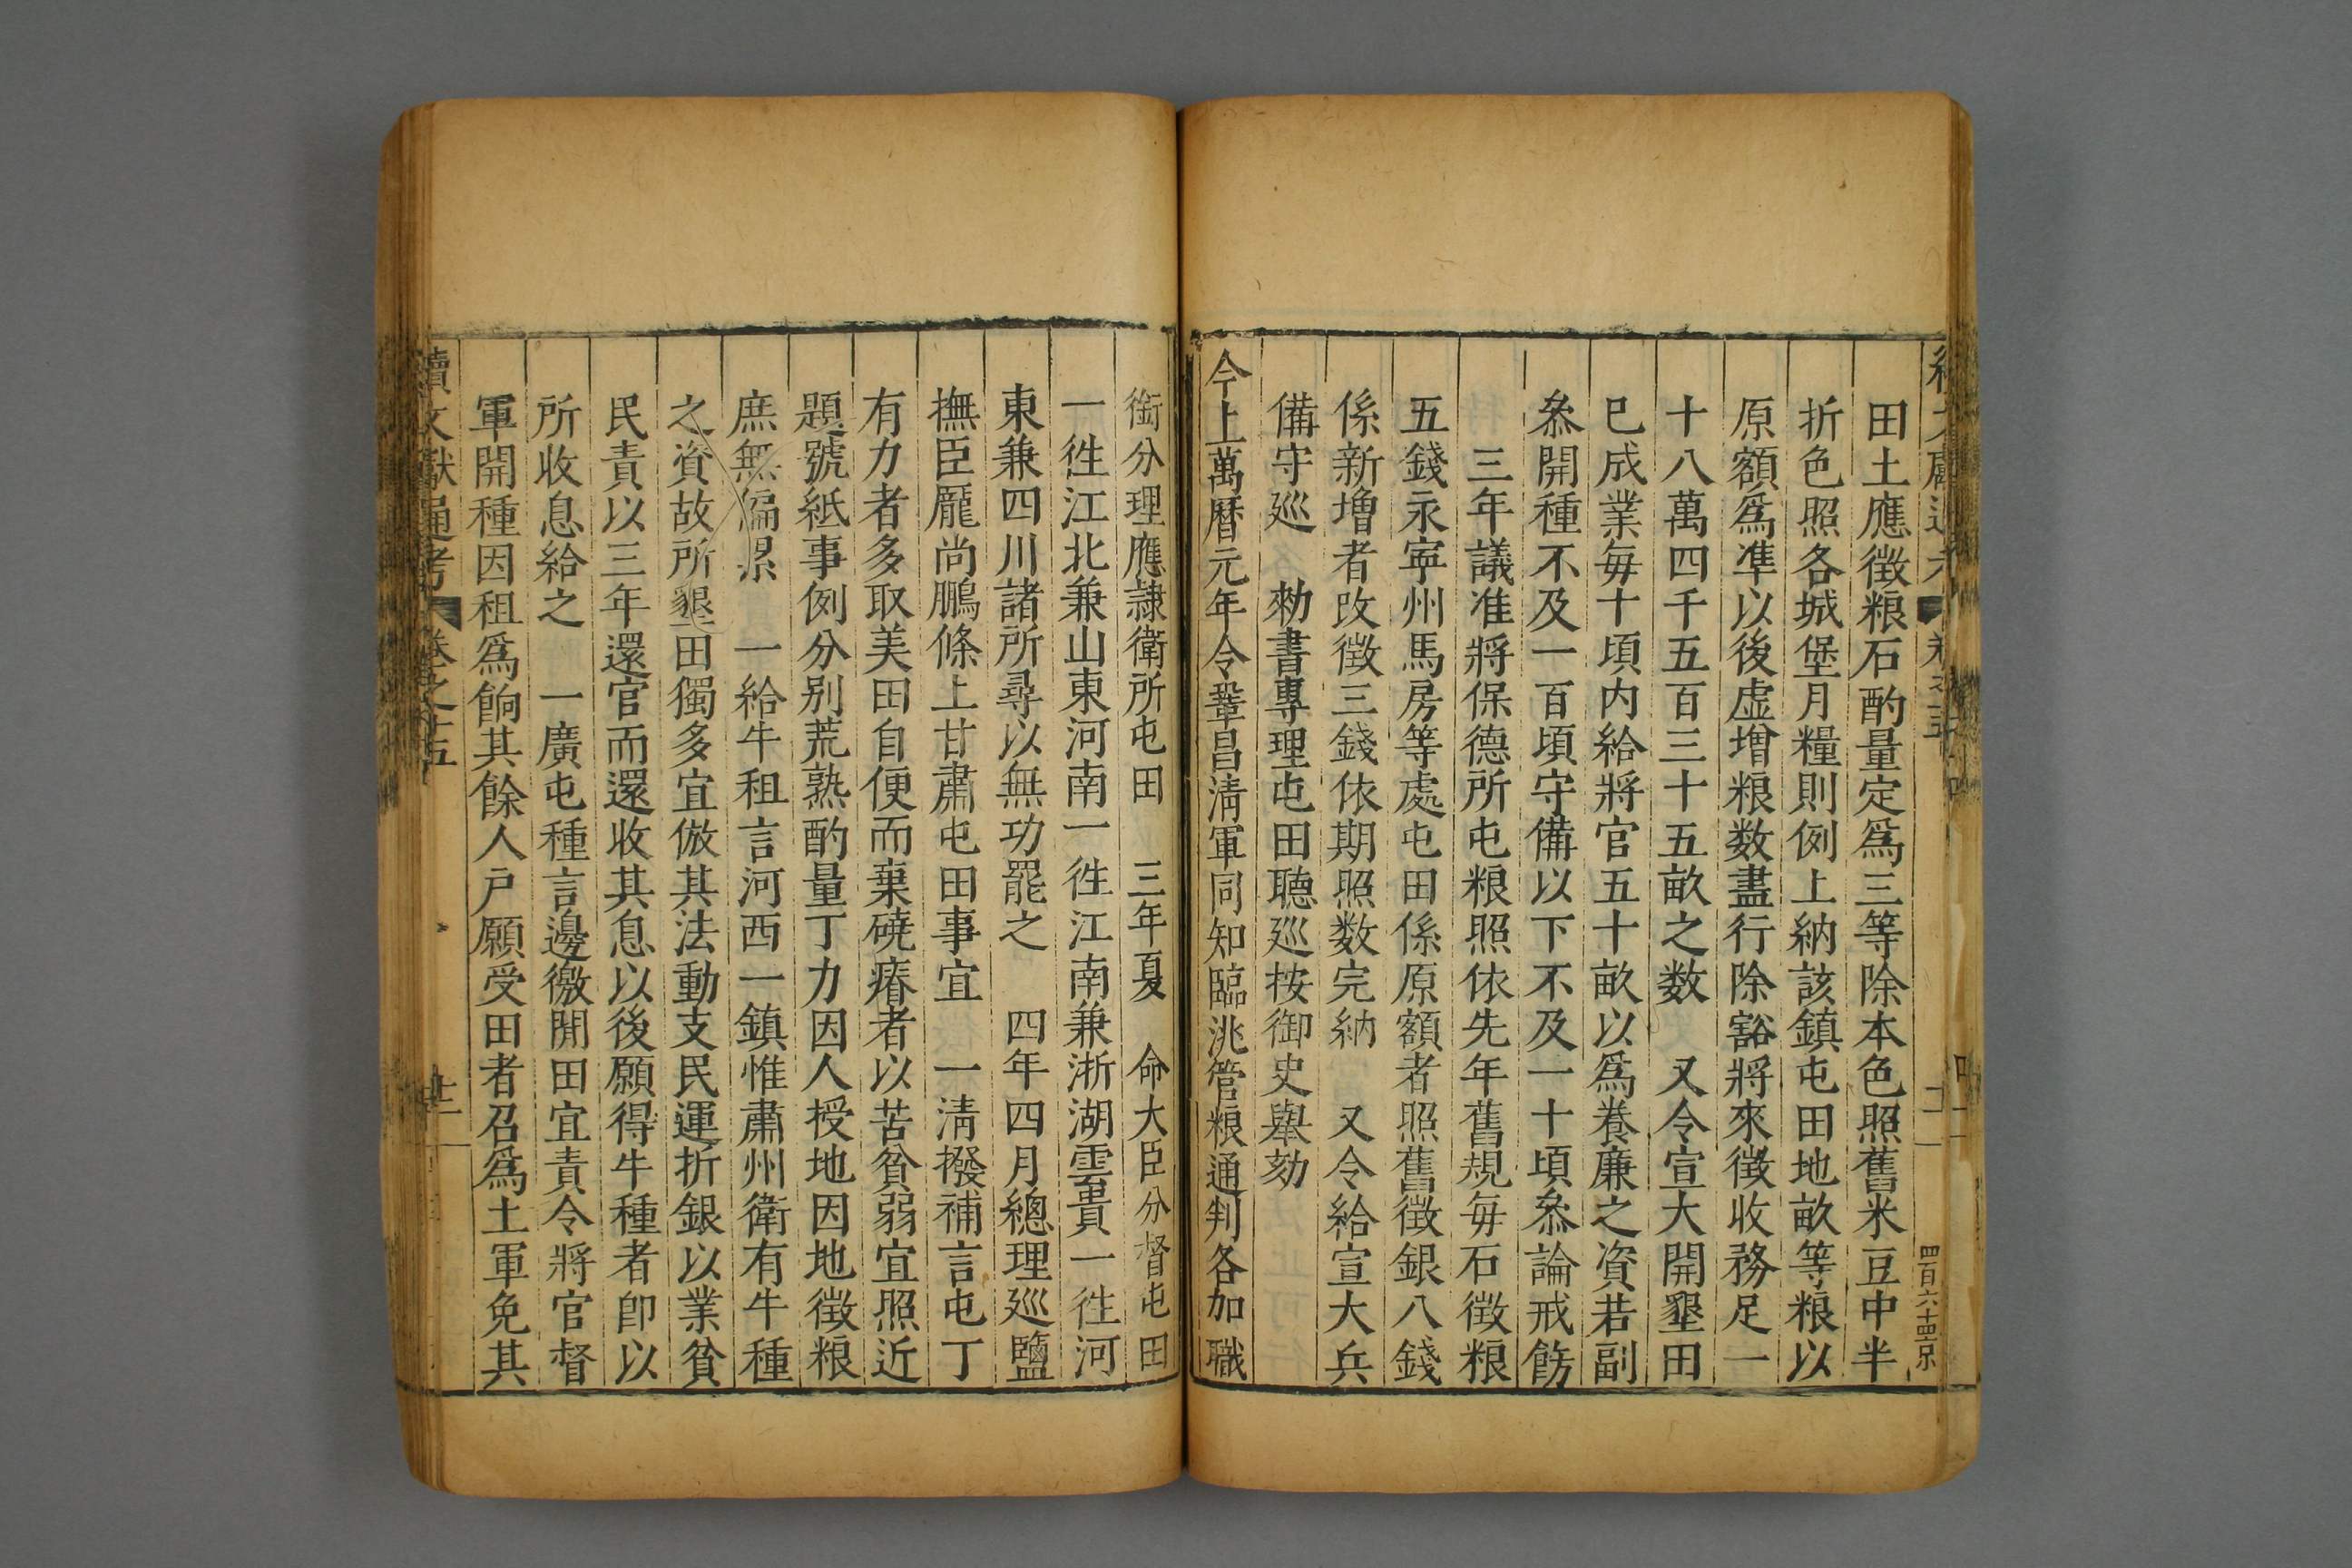 田土應徴粮石酌量定爲三等除本色照舊米豆中半
折色照各城堡月糧則例上納該鎮屯田地畝等粮以
原額爲凖以後虚增粮数盡行除豁將來徴收務足一
十八萬四千五百三十五畝之数　又令宣大開墾田
已成業每十頃内給將官五十畝以爲養廉之資若副
叅開種不及一百頃守備以下不及一十頃叅論戒飭
三年議准將保德所屯粮照依先年舊規每石徴粮
五錢永寜州馬房等處屯田係原額者照舊徴銀八錢
係新增者改徴三錢依期照数完納　又令給宣大兵
備守廵　勑書專理屯田聴廵按御史舉劾
今上萬曆元年令鞏昌淸軍同知臨洮管粮通判各加職
銜分理應隷衛所屯田　三年夏　命大臣分督屯田
一徃江北兼山東河南一徃江南兼浙湖雲貴一徃河
東兼四川諸所尋以無功罷之　四年四月總理廵鹽
撫臣龐尚鵬條上甘肅屯田事宜　一淸撥補言屯丁
有力者多取美田自便而棄磽瘠者以苦貧弱宜照近
題號紙事例分别荒熟酌量丁力因人授地因地徴粮
庶無偏累　一給牛租言河西一鎮惟肅州衛有牛種
之資故所墾田獨多宜倣其法動支民運折銀以業貧
民責以三年還官而還收其息以後願得牛種者卽以
所收息給之　一廣屯種言邊徼閒田宜責令將官督
軍開種因租爲餉其餘人户願受田者召爲土軍免其
續文獻通考　卷之十五